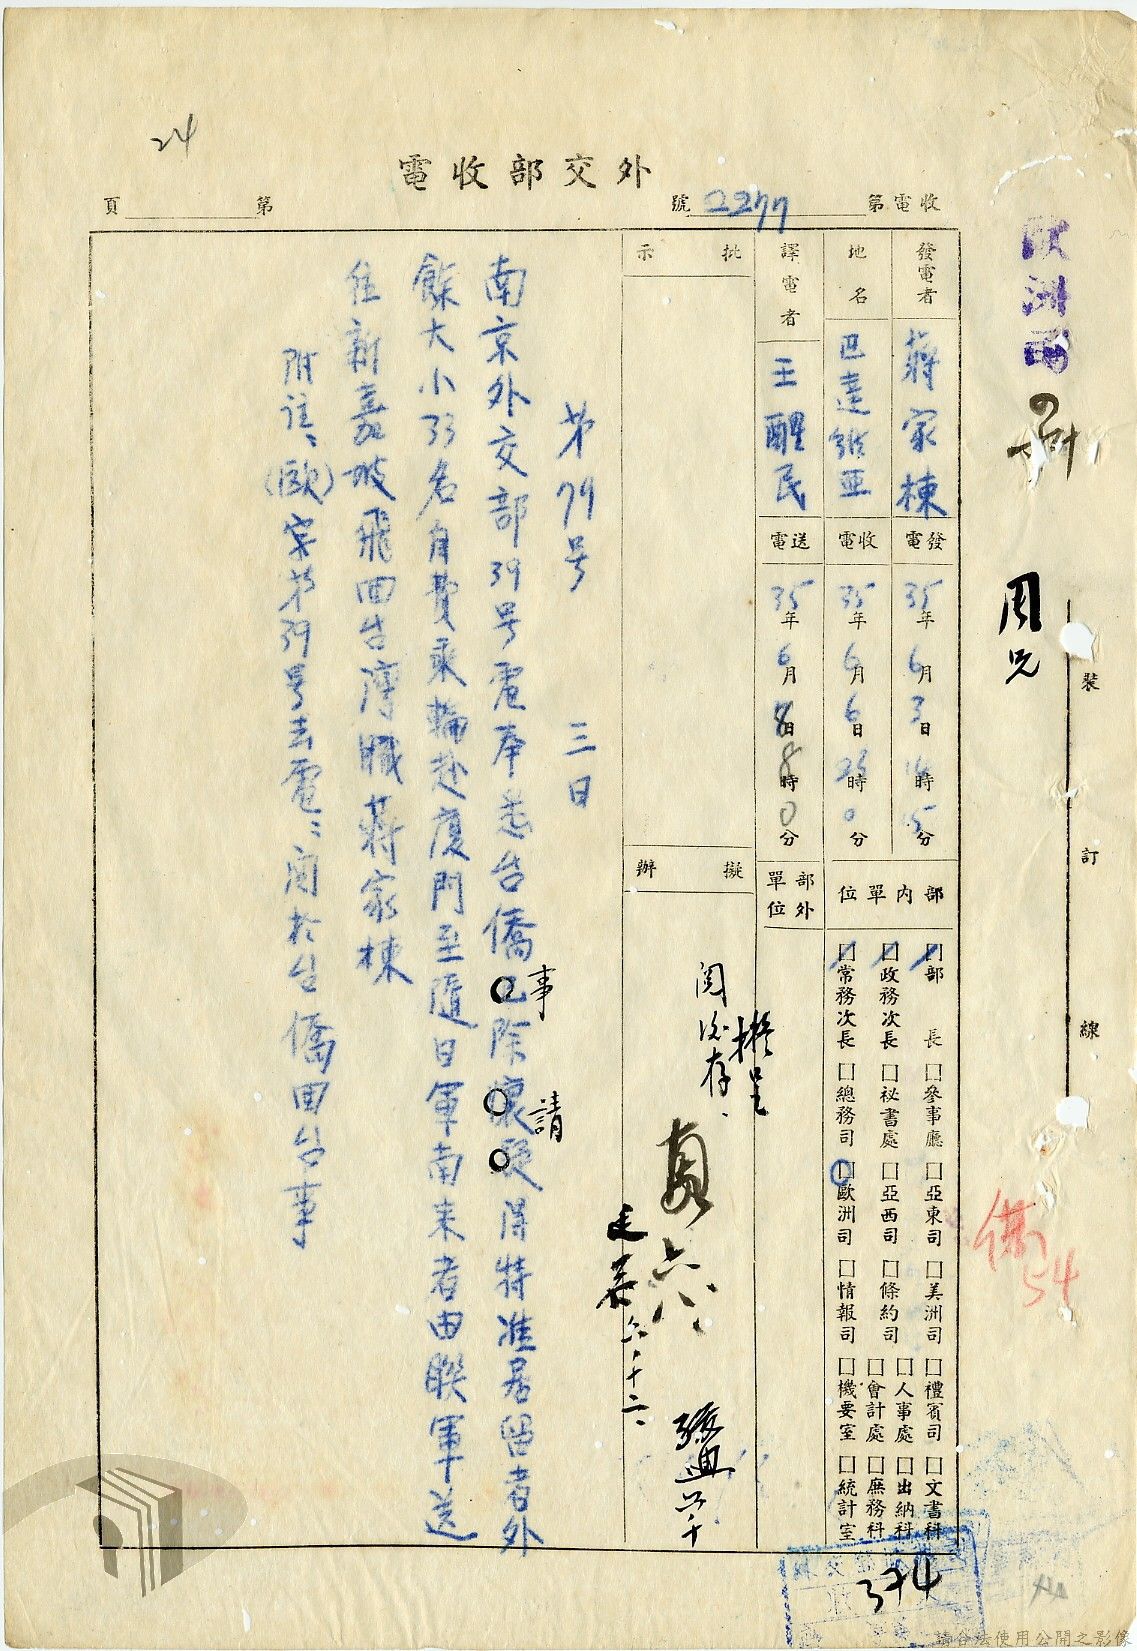 24
外交部收電
收電第2277號
第 頁
歐洲司
周兄
裝 訂 線
僑
54
發電者 蔣家棟
發電 35年6月3日 時15分
地名 巴達維亞
收電 35年6月6日23時0分
譯電者 王醒民
送電 35年6月8日8時0分
部內單位
□部長 □參事廳 □亞東司 □美洲司 □禮賓司 □文書科
□人事處 □出納科
□政務次長 □祕書處 □亞西司 □條約司 □會計處 □庶務科
□常務次長 □總務司 □歐洲司 □情報司 □機要室 □統計室
部外單位
批示
擬辦
擬呈
閱後存、
六八
張典 六十
六、十二、
第79号 三日
南京外交部39号電奉悉台僑已除懷疑得特准居留者外
事 請
餘大小33名自費乘輪赴廈門至隨日軍南來者由聯軍送
住新嘉坡飛回台灣職蔣家棟
附註:(歐)字第39号去電:關於台僑回台事
374
請合法使用公開之影像